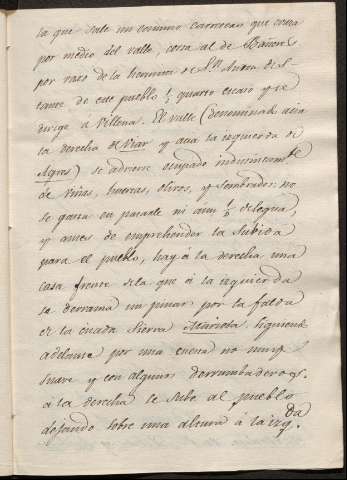 la que sale un camino carretero que cruza
por medio del valle, corta al de Bañeres
por raso de la hermita de Sn. Antonio
tante de este pueblo ¼ quarto escaso y se
dirige a Villena. El valle (denominado acia
la derecha de Viar y acia la izquierda de
Agres) se advierte ocupado indistintamte.
de viñas, huertas, olivos, y sembrados: no
se gasta en pasarle ni aun ½ de legua,
y antes de emprehender la subida
para el pueblo, hay a la derecha una
casa frente de la que á la izquierda
se derrama un pinar por la falda
de la citada Sierra Mariola. Siguiendo
adelante por una cuesta no muy
suave y con algunos derrumbaderos
a la derecha se sube al pueblo
dejando sobre una altura á la izqda.